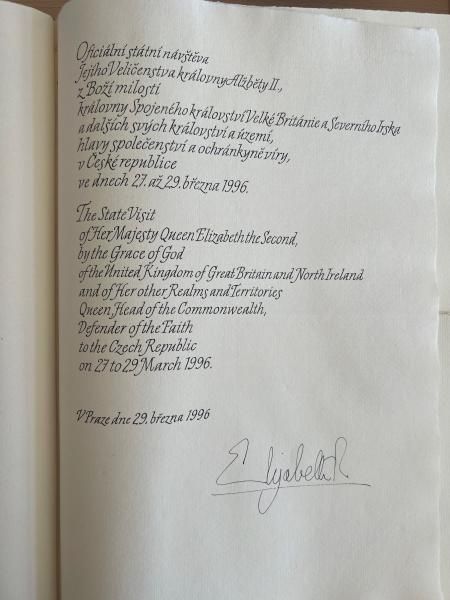 Oficiální státní návštěva
Jejího Veličenstva královny Alžběty II.,
z Boží milosti
královny Spojeného království Velké Británie a Severního Irska
a dalších svých království a území,
hlavy společenství a ochránkyně víry,
v České republice
ve dnech 27. až 29. března 1996.
The State Visit
of Her Majesty Queen Elizabeth the Second,
by the Grace of God
of the United Kingdom of Great Britain and North Ireland
and of Her other Realms and Territories
Queen Head of the Commonwealth,
Defender of the Faith
to the Czech Republic
on 27 to 29 March 1996.
V Praze dne 29. března 1996
Elizabeth R